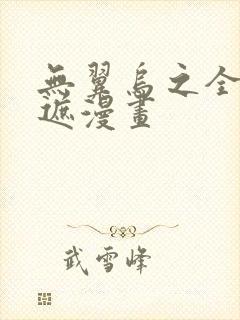 無翼鳥之全
遮漫畫
武雪峰